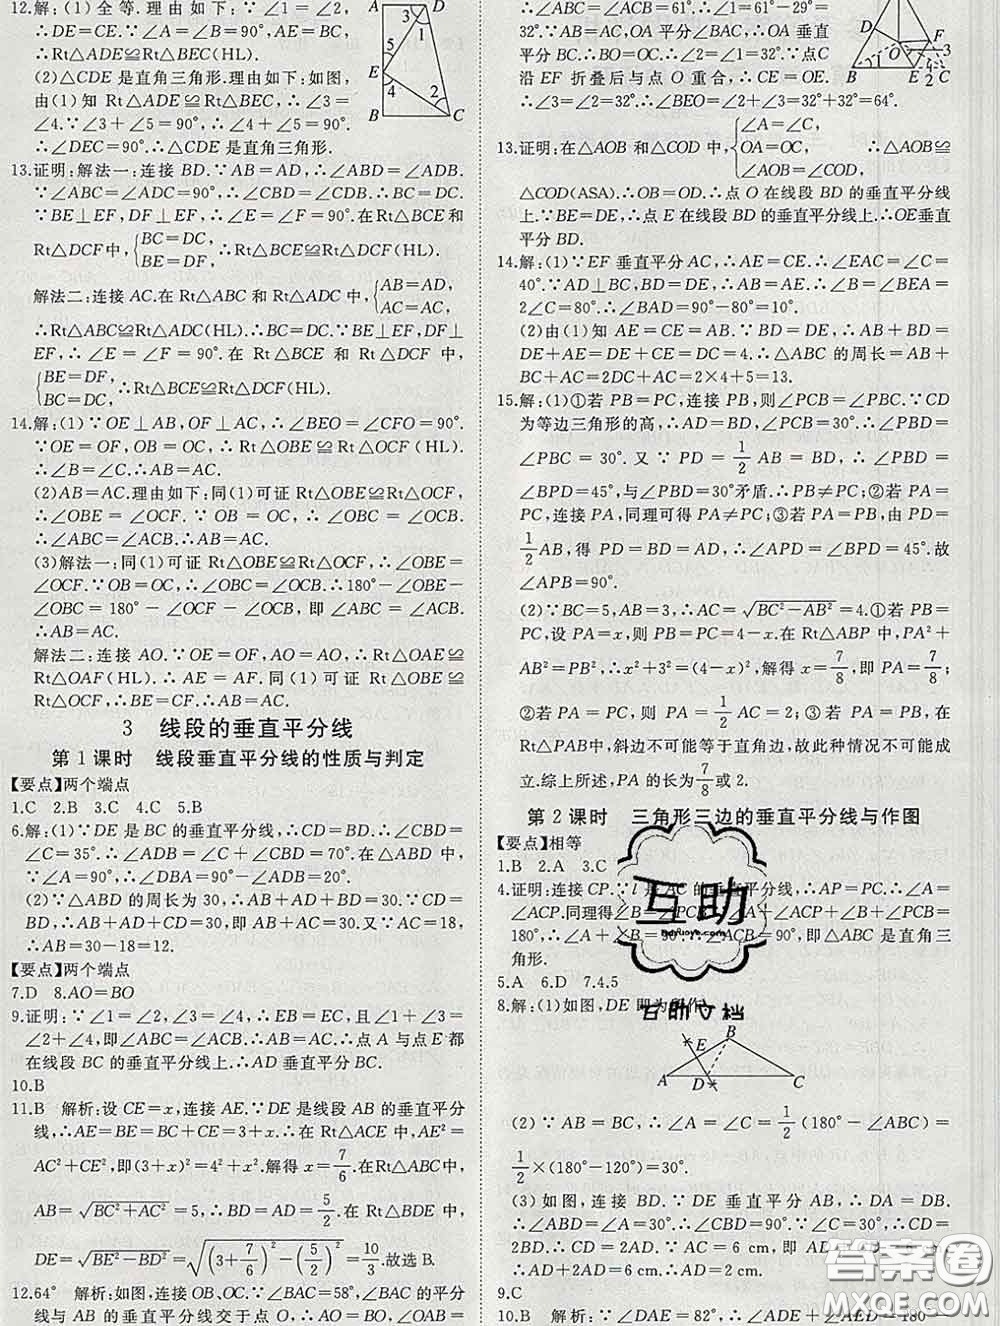 12.解:(1)全等.理由如下:∵∠1=∠2,
∴DE=CE.∵∠A=∠B=90°,AE=BC,
∴Rt△ADE≌Rt△BEC(HL).
(2)△CDE是直角三角形.理由如下:如图,
由(1)知 Rt△ADE≌Rt△BEC,∴∠3=
∠4.∵∠3+∠5=90°,∴∠4+∠5=90°,
∴∠DEC=90°.∴△CDE是直角三角形.
13.证明:解法一:连接BD.∵AB=AD,∴∠ABD=∠ADB.
∵∠ABC=∠ADC=90°,∴∠CBD=∠CDB.∴BC=DC.
∵BE⊥EF,DF⊥EF,∴∠E=∠F=90°.在Rt△BCE和
Rt△DCF中,{BC=DC, BE=DF, ∴Rt△BCE≌Rt△DCF(HL).
解法二:连接AC.在Rt△ABC和Rt△ADC中,{AB=AD, AC=AC,
∴Rt△ABC≌Rt△ADC(HL).∴BC=DC.∵BE⊥EF,DF⊥
EF,∴∠E=∠F=90°.在Rt△BCE和Rt△DCF中,
{BE=DF, BC=DC, ∴Rt△BCE≌Rt△DCF(HL).
14.解:(1)∵OE⊥AB,OF⊥AC,∴∠BEO=∠CFO=90°.
∵OE=OF,OB=OC,∴Rt△OBE≌Rt△OCF(HL).
∴∠B=∠C.∴AB=AC.
(2)AB=AC.理由如下:同(1)可证Rt△OBE≌Rt△OCF.
∴∠OBE=∠OCF.∵OB=OC,∴∠OBC=∠OCB.
∴∠ABC=∠ACB.∴AB=AC.
(3)解法一:同(1)可证Rt△OBE≌Rt△OCF.∴∠OBE=
∠OCF.∵OB=OC,∴∠OBC=∠OCB.∴180°-∠OBE-
∠OBC=180°-∠OCF-∠OCB,即∠ABC=∠ACB.
∴AB=AC.
解法二:连接AO.∵OE=OF,AO=AO,∴Rt△OAE≌
Rt△OAF(HL).∴AE=AF.同(1)可证Rt△OBE≌
Rt△OCF,∴BE=CF.∴AB=AC.
3 线段的垂直平分线
第1课时 线段垂直平分线的性质与判定
【要点】两个端点
1.C 2.B 3.C 4.C 5.B
6.解:(1)∵DE是BC的垂直平分线,∴CD=BD.∴∠CBD=
∠C=35°.∴∠ADB=∠C+∠CBD=70°.在△ABD中,
∵∠A=90°,∴∠ABD=90°-∠ADB=20°.
(2)∵△ABD的周长为30,∴AB+AD+BD=30.∵CD=
BD,∴AB+AD+CD=30,即AB+AC=30.又∵AC=18,
∴AB=30-18=12.
【要点】两个端点
7.D 8.AO=BO
9.证明:∵∠1=∠2,∠3=∠4,∴EB=EC,且∠1+∠3=
∠2+∠4,即∠ABC=∠ACB.∴AB=AC.∴点A与点E都
在线段BC的垂直平分线上.∴AD垂直平分BC.
10.B
11.B 解析:设CE=x,连接AE.∵DE是线段AB的垂直平分
线,∴AE=BE=BC+CE=3+x.∴在Rt△ACE中,AE²=
AC²+CE²,即(3+x)²=4²+x².解得x=7/6.在Rt△ABC中,
AB=√(BC²+AC²)=5,∴BD=AD=5/2.在Rt△BDE中,
DE=√(BE²-BD²)=√((3+7/6)²-(5/2)²)=10/3.故选B.
12.64° 解析:如图,连接OB,OC.∵∠BAC=58°,∠BAC的平分
线与AB的垂直平分线交于点O,∴AO=BO,∠OAB=
∴∠ABC=∠ACB=61°.∴∠2+∠1=61°-29°=
32°.∵AB=AC,OA平分∠BAC,∴OA垂直
平分BC.∴BO=OC.∴∠2=∠1=32°.∵点C
沿EF折叠后与点O重合,∴CE=OE.
∴∠3=∠2=32°.∴∠BEO=∠2+∠3=32°+32°=64°.
13.证明:在△AOB和△COD中,{∠A=∠C, OA=OC, ∠AOB=∠COD, ∴△AOB≌
△COD(ASA).∴OB=OD.∴点O在线段BD的垂直平分线
上.∵BE=DE,∴点E在线段BD的垂直平分线上.∴OE垂直
平分BD.
14.解:(1)∵EF垂直平分AC,∴AE=CE.∴∠EAC=∠C=
40°.∵AD⊥BC,BD=DE,∴AB=AE.∴∠B=∠BEA=
2∠C=80°.∴∠BAD=90°-80°=10°.
(2)由(1)知AE=CE=AB.∵BD=DE,∴AB+BD=
DE+AE=DE+CE=DC.∴△ABC的周长=AB+
BC+AC=2DC+AC=2×4+5=13.
15.解:(1)①若PB=PC,连接PB,则∠PCB=∠PBC.∵CD
为等边三角形的高,∴AD=BD,∠PCB=30°.∴∠PBD=
∠PBC=30°.又∵PD=1/2AB=BD,∴∠DPB=
∠BPD=45°,与∠PBD=30°矛盾.∴PB≠PC;②若PA=
PC,连接PA,同理可得PA≠PC;③若PA=PB,由PD=
1/2AB,得PD=BD=AD,∴∠APD=∠BPD=45°.故
∠APB=90°.
(2)∵BC=5,AB=3,∴AC=√(BC²-AB²)=4.①若PB=
PC,设PA=x,则PC=PB=4-x.在Rt△ABP中,PA²+
AB²=PB²,∴x²+3²=(4-x)².解得x=7/8,即PA=7/8;
②若PA=PC,则PA=1/2AC=2;③若PA=PB,在
Rt△PAB中,斜边不可能等于直角边,故此种情况不可能成
立.综上所述,PA的长为7/8或2.
第2课时 三角形三边的垂直平分线与作图
【要点】相等
1.B 2.A 3.C
4.证明:连接CP.∵l是AC的垂直平分线,∴AP=CP.∴∠A=
180°,∴∠A+∠B=90°.∴∠ACB=90°,即△ABC是直角三
角形.
5.A 6.D 7.4.5
8.解:(1)如图,DE即为所作.
(2)∵AB=BC,∴∠A=∠C=1/2(180°-∠ABC)=
1/2×(180°-120°)=30°.
(3)如图,连接BD.∵DE垂直平分AB,∴DA=DB.
∴∠ABD=∠A=30°.∴∠CBD=90°.∵∠C=30°,
∴CD=2BD.∴CD=2AD.∵AC=6 cm,即AD+CD=6 cm,
∴AD+2AD=6 cm.∴AD=2 cm.
9.C
10.B 解析:∵∠DAE=82°,∴∠ADE+∠AED=180°-
互助
互助文档
答案圈
MXQE.COM